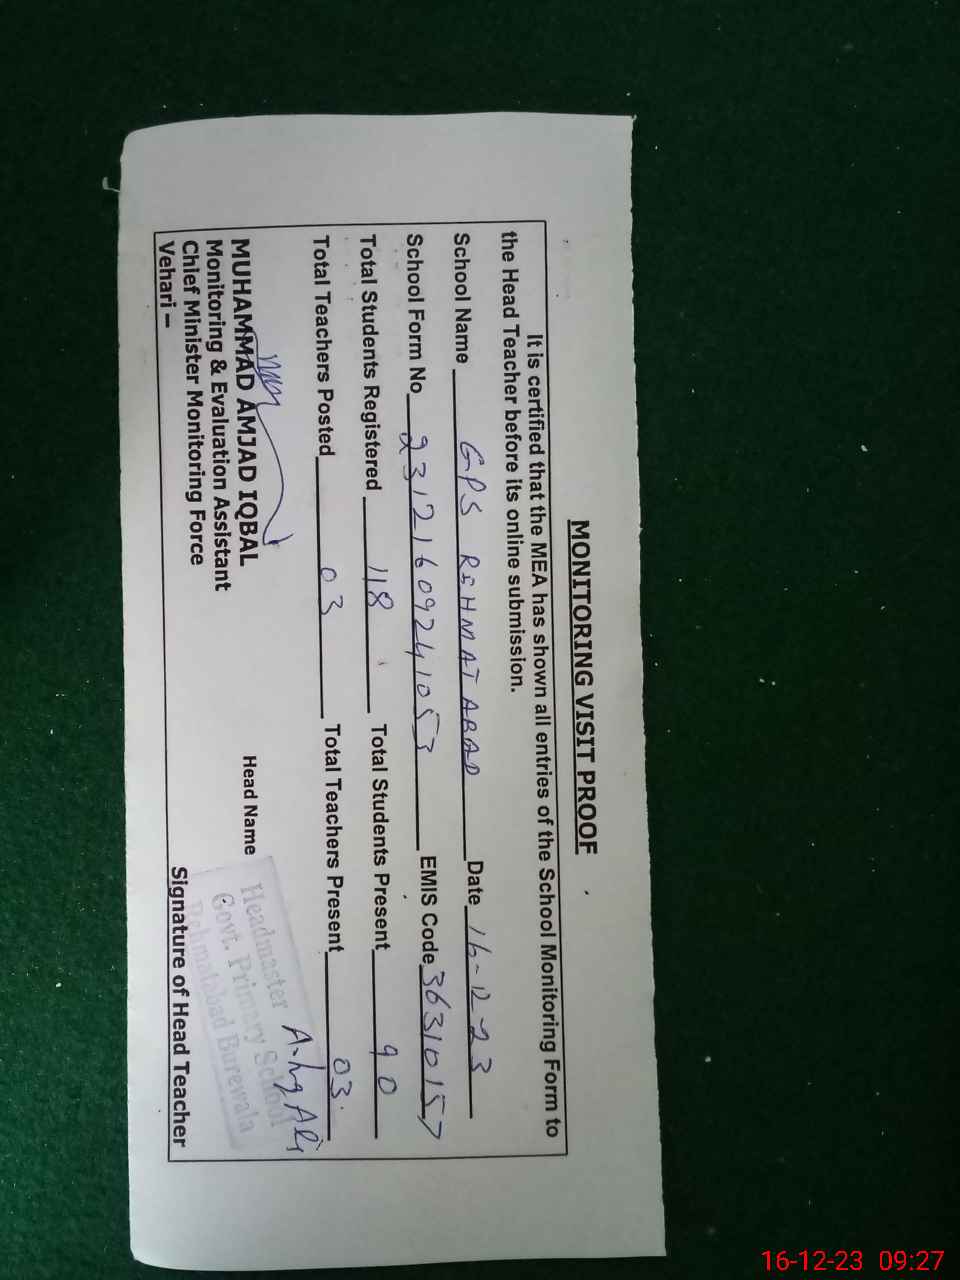 MONITORING VISIT PROOF
It is certified that the MEA has shown all entries of the School Monitoring Form to
the Head Teacher before its online submission.
School Name GPS REHMAT ABAD Date 16-12-23
School Form No 23121609241053 EMIS Code 36310157
Total Students Registered 118 Total Students Present 90
Total Teachers Posted 03 Total Teachers Present 03
MUHAMMAD AMJAD IQBAL
Monitoring & Evaluation Assistant
Chief Minister Monitoring Force
Vehari –
Head Name
Headmaster
Govt. Primary School
Rehmatabad Burewala
Signature of Head Teacher
16-12-23 09:27